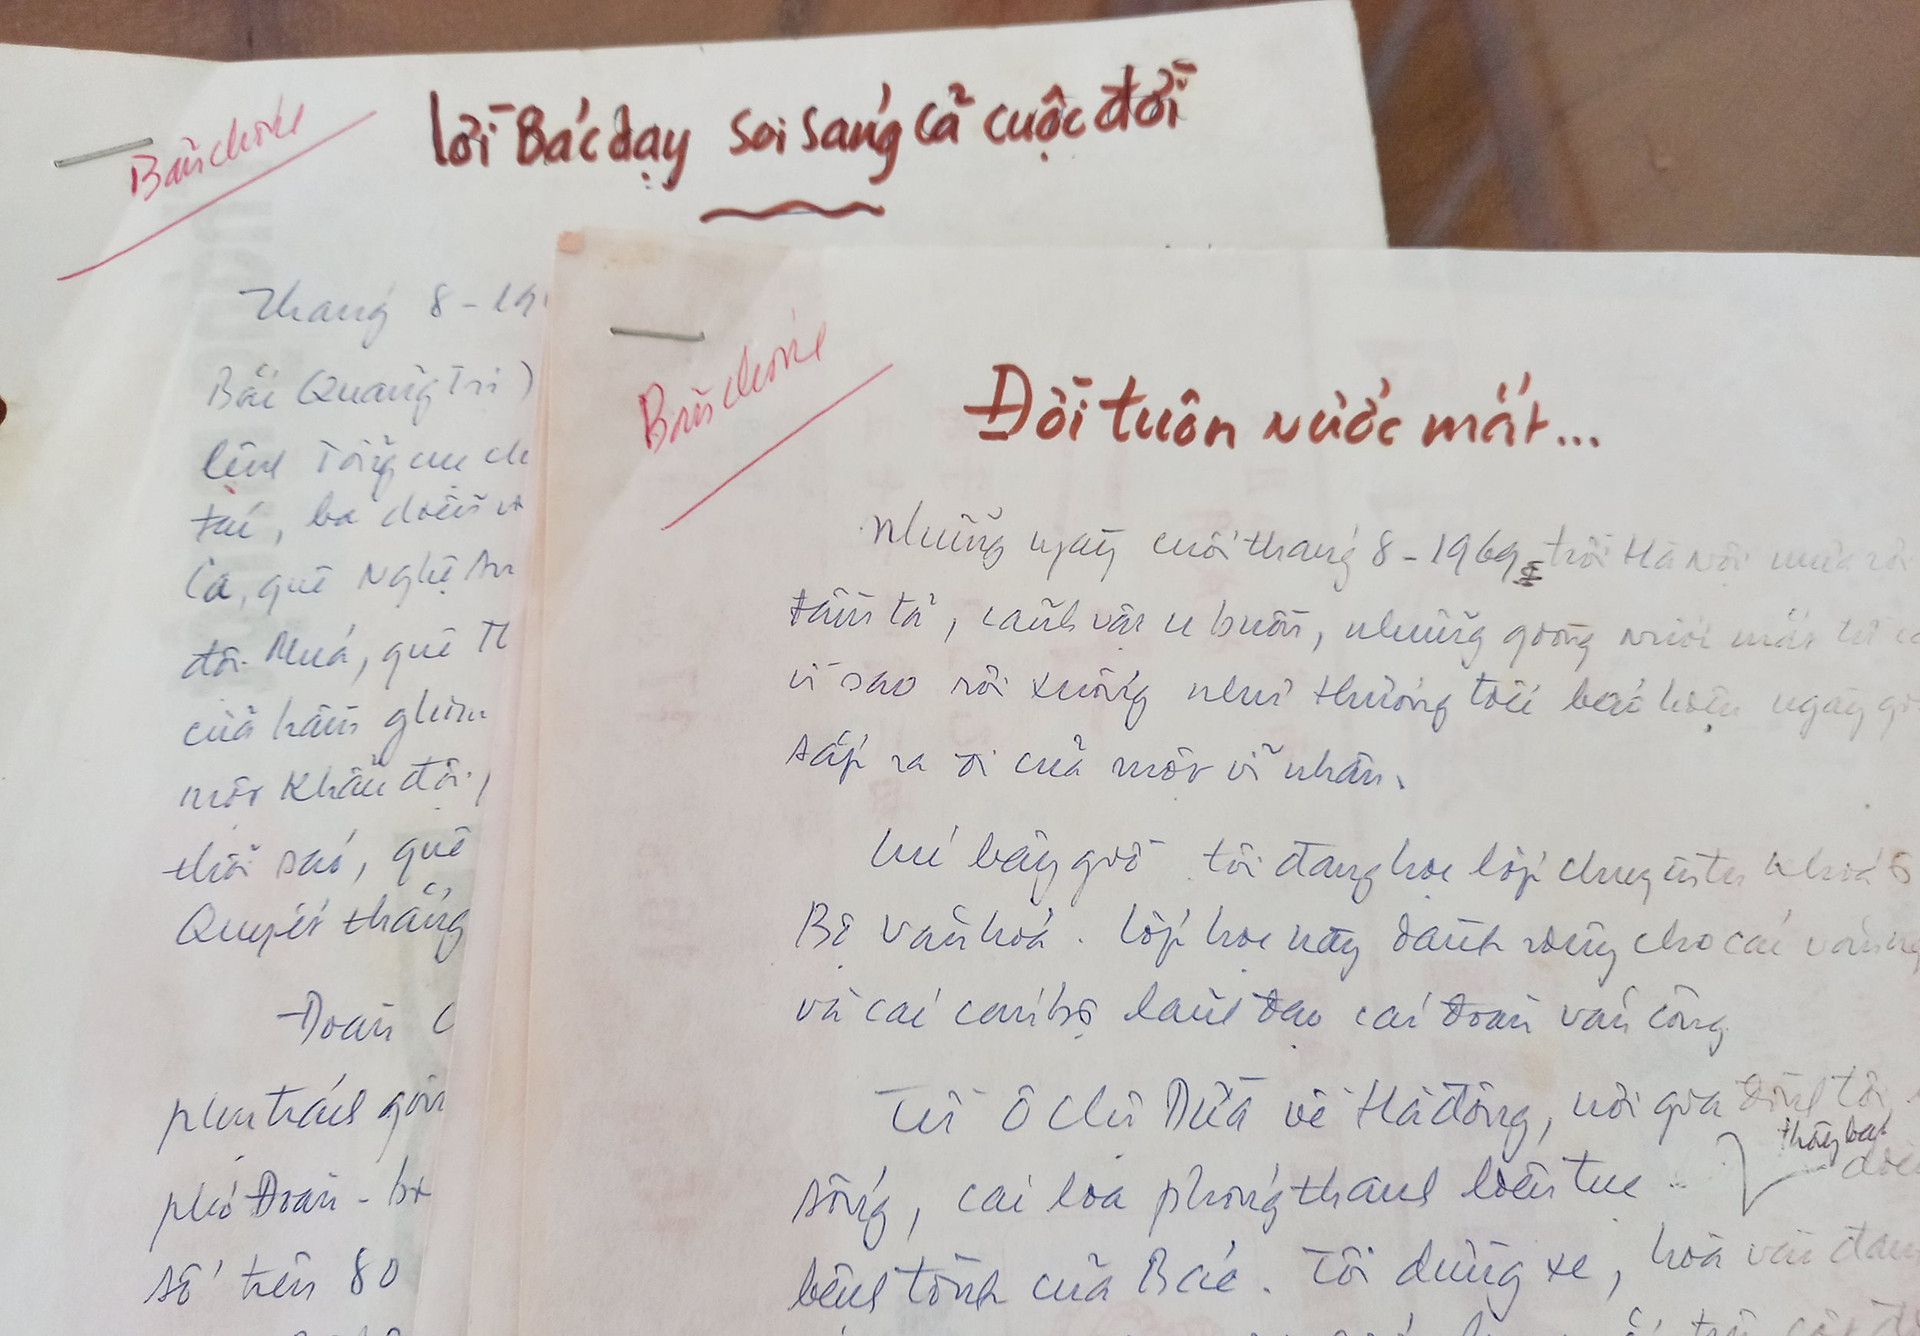 Bản chính
Lời Bác dạy soi sáng cả cuộc đời
Tháng 8 - 19
Bắc Quảng Trị)
lệnh Tổng cục ch
tác, ba diễn v
Ca, quê Nghệ An
đội Muá, quê Th
của hầm
một Khẩu đội,
thổi sáo, quê
Quyết thắng
Đoàn c
phụ trách gồm
phó Đoàn - b
số trên 80
Bản chính
Đời tuôn nước mắt...
Những ngày cuối tháng 8 - 1969, trời Hà Nội mưa rơi
tầm tã, cảnh vật u buồn, những giọng nước mắt từ c
vì sao rơi xuống như thương tiếc báo hiệu ngày gi
sắp ra đi của một vĩ nhân.
Lúc bây giờ tôi đang học lớp chuyên tu khoá
Bộ văn hoá. Lớp học này dành riêng cho các văn n
và các cán bộ lãnh đạo các đoàn văn công
Từ Ô Chợ Dừa về Hà đông, nơi gia đình tôi
thông báo
sống, cái loa phóng thanh liên tục .. diễn
bệnh tình của Bác. Tôi dừng xe, hoà vào đám